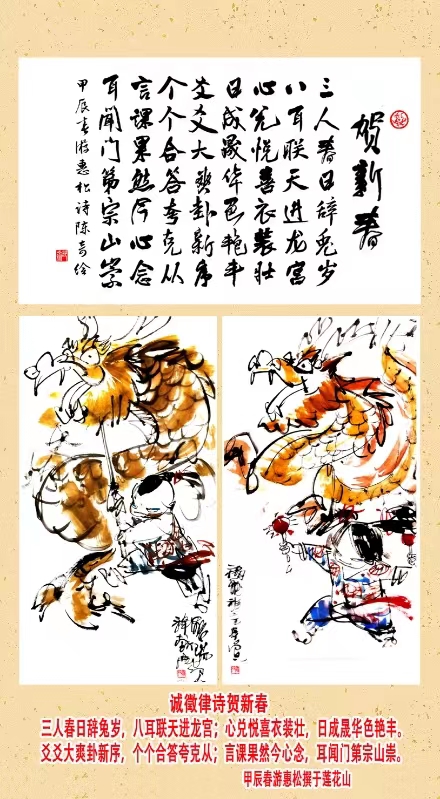 贺新春
三人春日辞兔岁
八耳联天进龙宫
心兑悦喜衣装壮
日成晟华色艳丰
爻爻大爽卦新序
个个合答夸克从
言课果然今心念
耳闻门第宗山崇
甲辰春游惠松诗陈奇绘
诚徵律诗贺新春
三人春日辞兔岁，八耳联天进龙宫；心兑悦喜衣装壮，日成晟华色艳丰。
爻爻大爽卦新序，个个合答夸克从；言课果然今心念，耳闻门第宗山崇。
甲辰春游惠松撰于莲花山